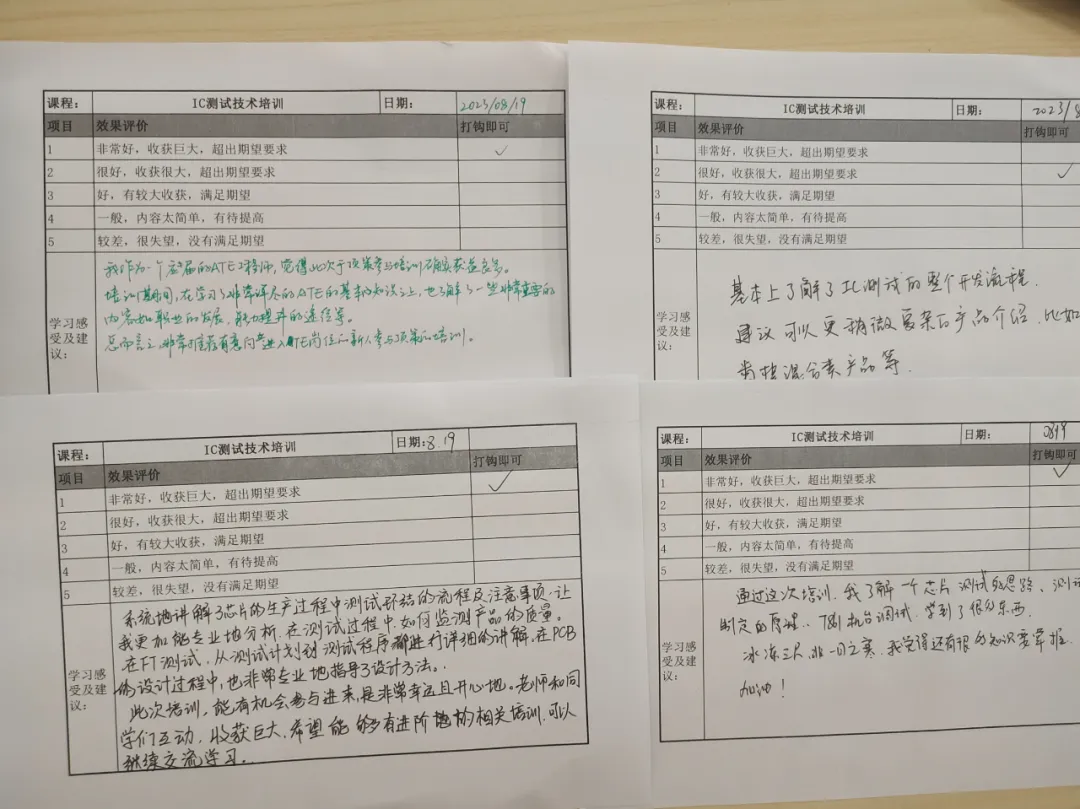 课程： IC测试技术培训 日期： 2023/08/19
项目 效果评价 打钩即可
1 非常好，收获巨大，超出期望要求 ✓
2 很好，收获很大，超出期望要求
3 好，有较大收获，满足期望
4 一般，内容太简单，有待提高
5 较差，很失望，没有满足期望
学习感受及建议：
我作为一个应届的ATE工程师，觉得此次于顶策参与培训确实获益良多。
培训期间，在学习了非常详尽的ATE的基本的知识之上，也了解了一些非常重要的
内容如职业的发展，能力提升的途径等。
总而言之，非常推荐有意向进入ATE岗位的新人参与顶策的培训。
课程： IC测试技术培训 日期： 2023/8
项目 效果评价 打钩即可
1 非常好，收获巨大，超出期望要求
2 很好，收获很大，超出期望要求 ✓
3 好，有较大收获，满足期望
4 一般，内容太简单，有待提高
5 较差，很失望，没有满足期望
学习感受及建议：
基本上了解了IC测试的整个开发流程.
建议可以更稍微复杂的产品介绍，比如
混合类产品等.
课程： IC测试技术培训 日期： 8.19
项目 效果评价 打钩即可
1 非常好，收获巨大，超出期望要求 ✓
2 很好，收获很大，超出期望要求
3 好，有较大收获，满足期望
4 一般，内容太简单，有待提高
5 较差，很失望，没有满足期望
学习感受及建议：
系统地讲解了芯片的生产过程中测试环结的流程及注意事项，让
我更加能专业地分析，在测试过程中，如何监测产品的质量。
在FT测试，从测试计划到测试程序都进行详细的讲解，在PCB
的设计过程中，也非常专业地指导了设计方法。.
此次培训，能有机会参与进来，是非常幸运且开心地。老师和同
学们互动，收获巨大，希望能够有进阶地的相关培训，可以
继续交流学习。.
课程： IC测试技术培训 日期： 0819
项目 效果评价 打钩即可
1 非常好，收获巨大，超出期望要求 ✓
2 很好，收获很大，超出期望要求
3 好，有较大收获，满足期望
4 一般，内容太简单，有待提高
5 较差，很失望，没有满足期望
学习感受及建议：
通过这次培训，我了解一个芯片测试的思路、测试
制定的原理.. 机台调试，学到了很多东西.
冰冻三尺，非一日之寒，我觉得还有很多知识要掌握.
加油！